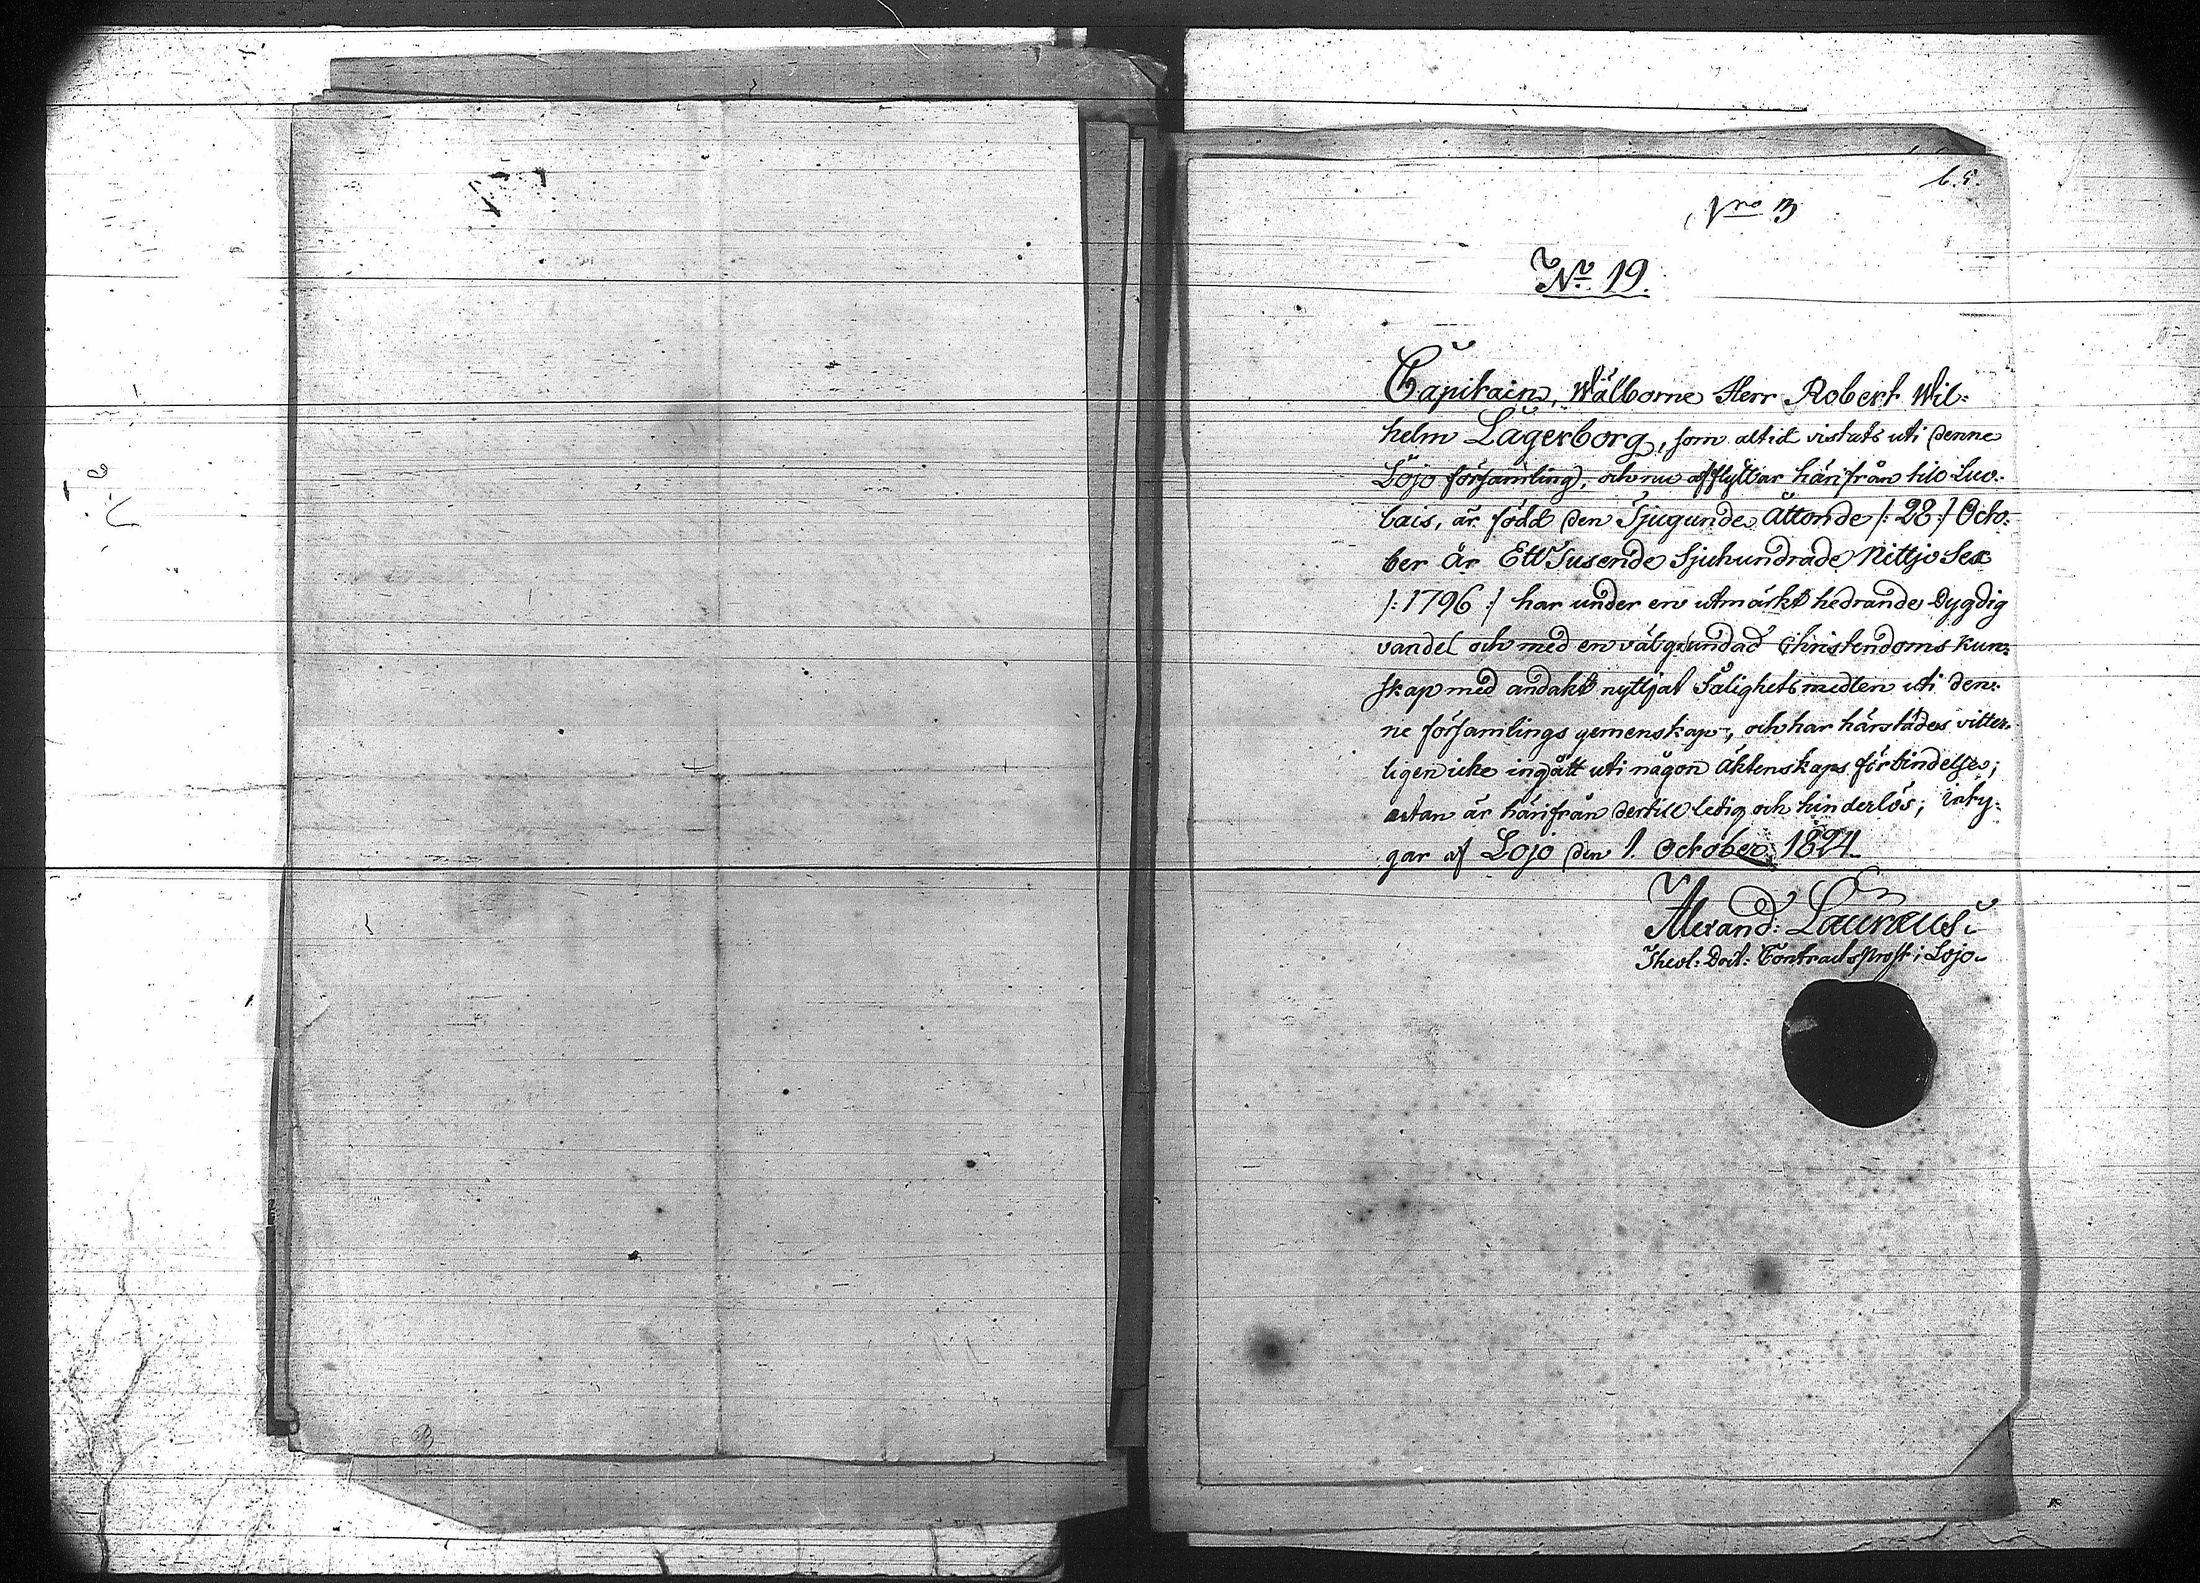 6.5.
Nro 13
No. 19.
Capitain, Wälborne Herr Robert Wil-
helm Lagerborg, som altid vistats uti denne
Lojo församling, och nu afflyttar härifrån till Suo-
lais, är född den Tjugunde Åttonde /: 28 :/ Octo-
ber År Ett Tusende Sjuhundrade Nittjo Sex
/: 1796 :/ har under en utmärkt hedrande Dygdig
vandel och med en välgrundad Christendoms kun-
skap med andakt nyttjat Salighetsmedlen uti den-
ne församlings gemenskap, och har härstädes vitter-
ligen icke ingått uti någon äktenskaps förbindelse;
utan är härifrån dertill ledig och hinderlös; inty-
gar af Lojo den 1. October 1824.
Alexand: Lauræus.
Theol: Doct: Contractsprost i Lojo.